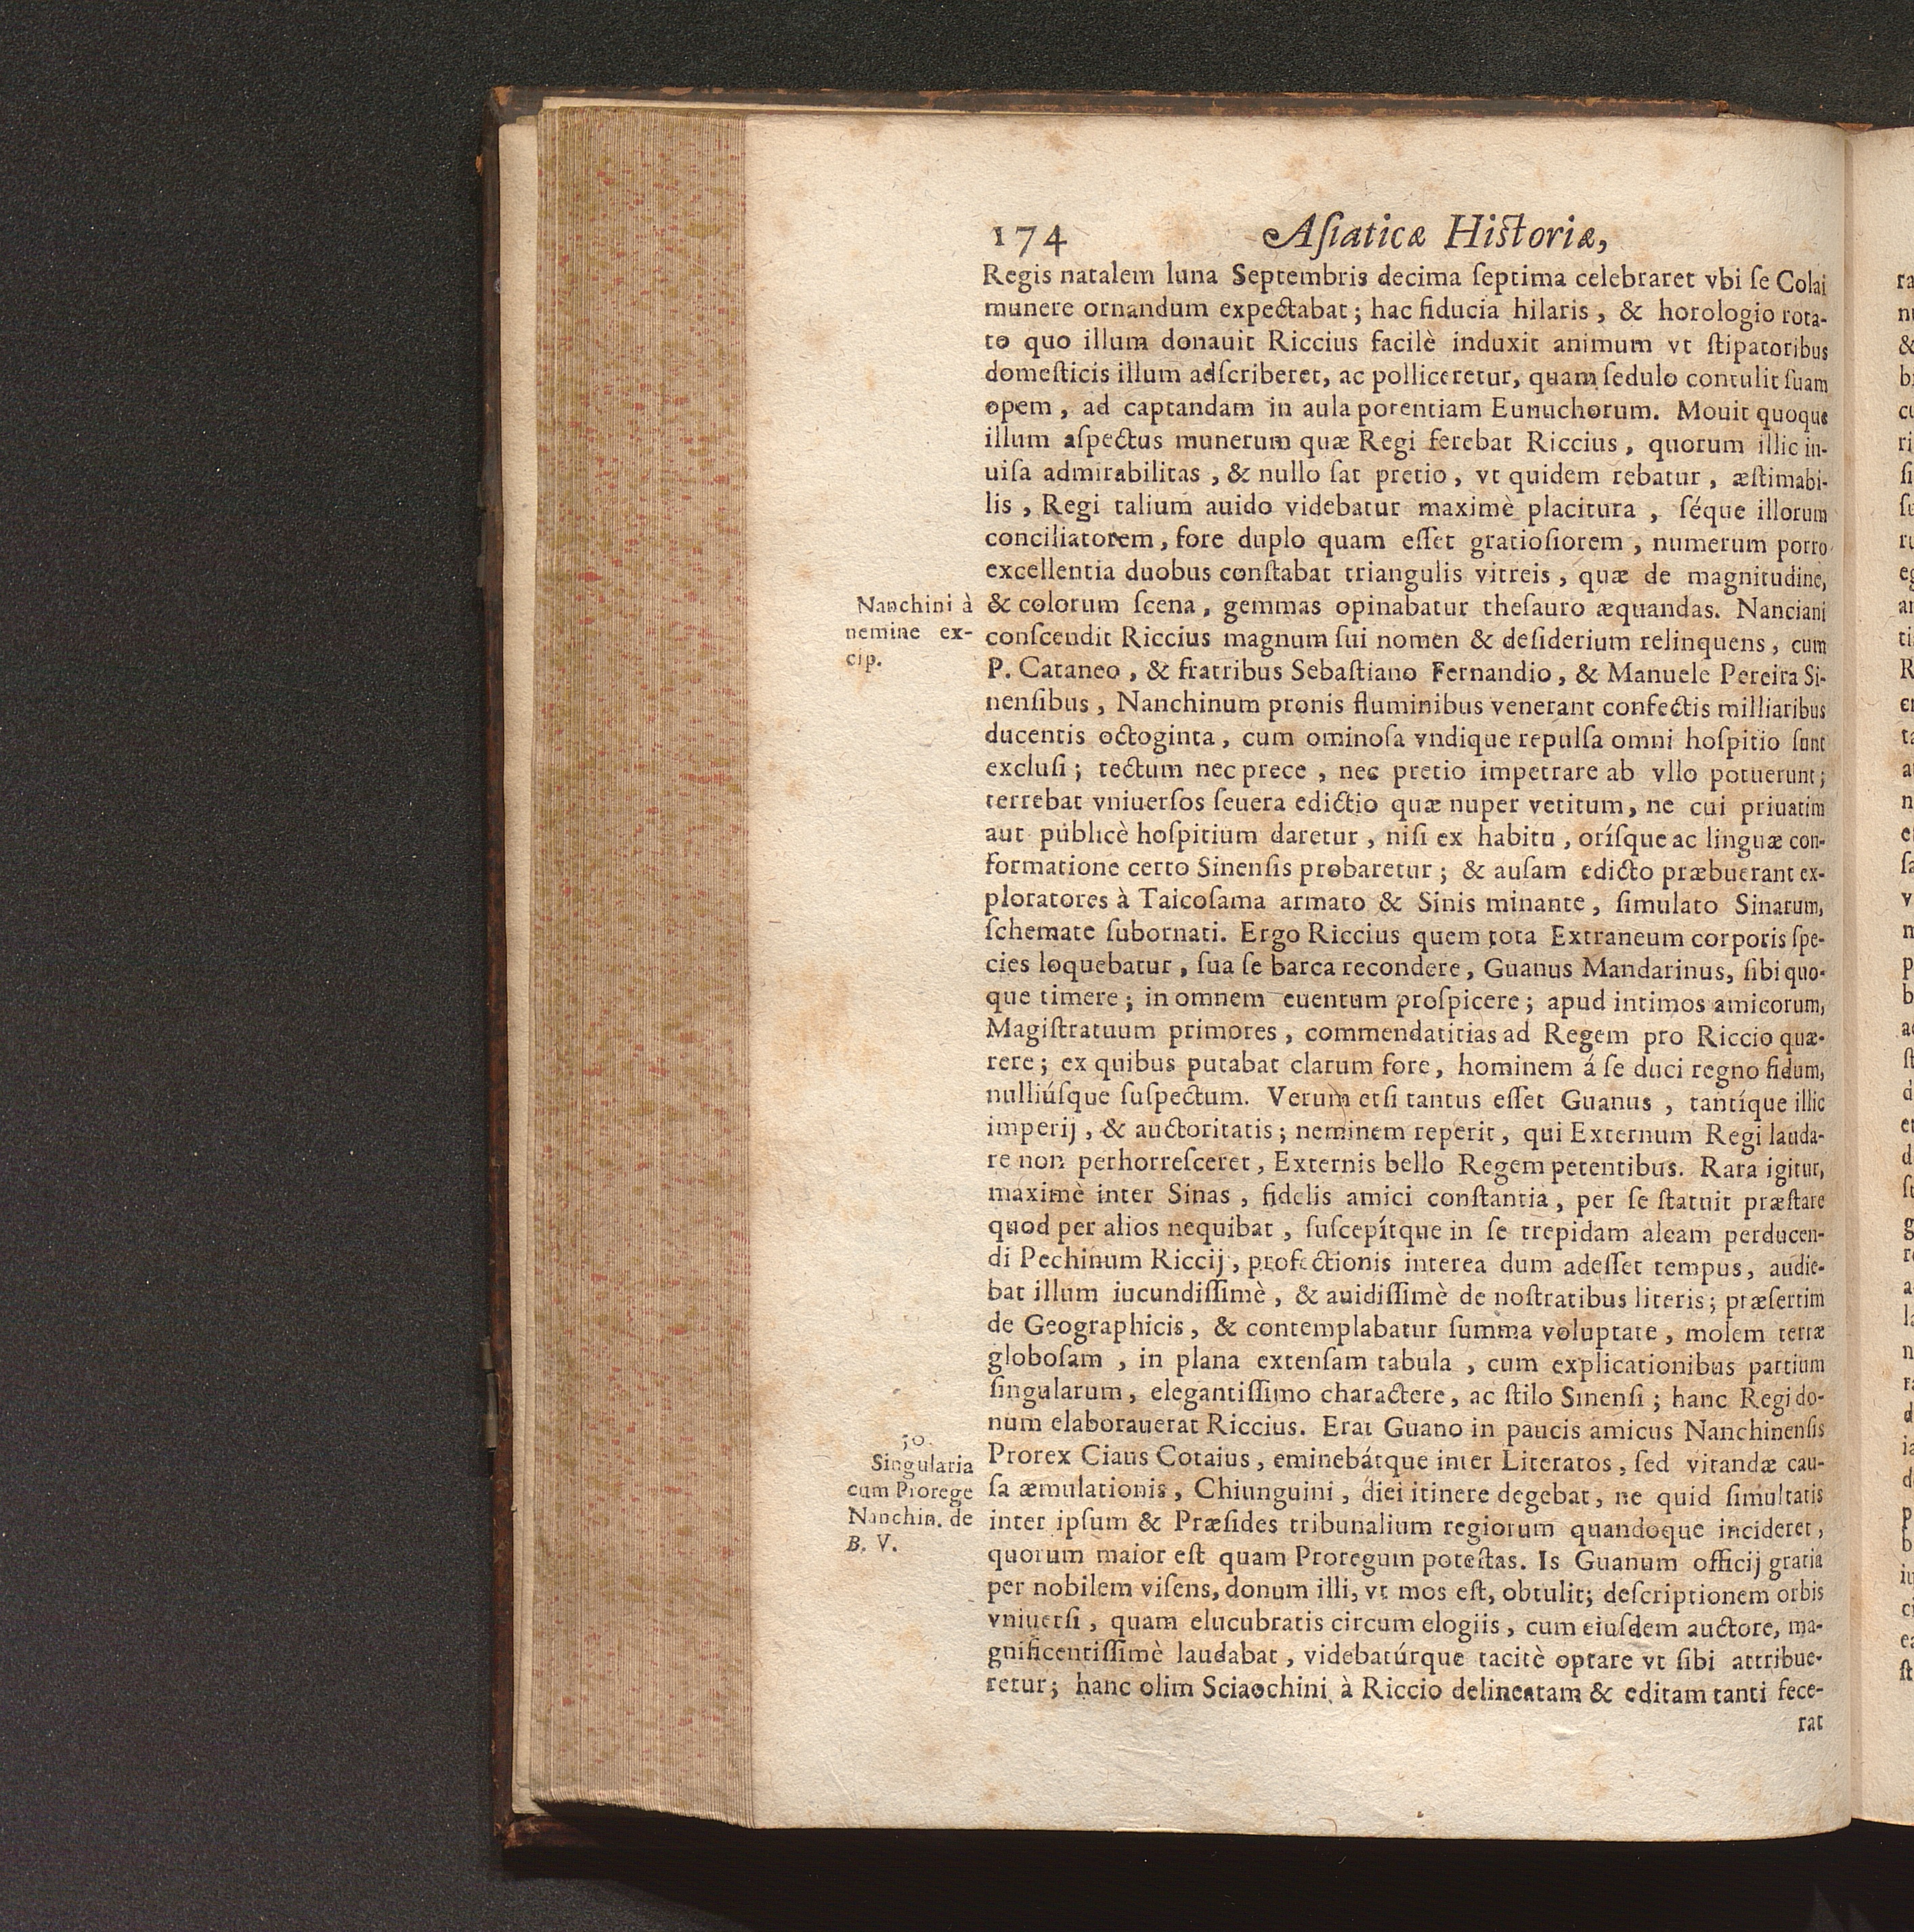 174 Asiaticæ Historiæ,
Regis natalem luna Septembris decima septima celebraret vbi se Colai
munere ornandum expectabat; hac fiducia hilaris, & horologio rota-
to quo illum donauit Riccius facilè induxit animum vt stipatoribus
domesticis illum adscriberet, ac polliceretur, quam sedulo contulit suam
opem, ad captandam in aula potentiam Eunuchorum. Mouit quoque
illum aspectus munerum quæ Regi ferebat Riccius, quorum illic in-
uisa admirabilitas, & nullo sat pretio, vt quidem rebatur, æstimabi-
lis, Regi talium auido videbatur maximè placitura, séque illorum
conciliatorem, fore duplo quam esset gratiosiorem, numerum porro
excellentia duobus constabat triangulis vitreis, quæ de magnitudine,
& colorum scena, gemmas opinabatur thesauro æquandas. Nanciani
Nanchini à
nemine ex-
cip.
conscendit Riccius magnum sui nomen & desiderium relinquens, cum
P. Cataneo, & fratribus Sebastiano Fernandio, & Manuele Pereira Si-
nensibus, Nanchinum pronis fluminibus venerant confectis milliaribus
ducentis octoginta, cum ominosa vndique repulsa omni hospitio sunt
exclusi; tectum nec prece, nec pretio impetrare ab vllo potuerunt;
terrebat vniuersos seuera edictio quæ nuper vetitum, ne cui priuatim
aut publicè hospitium daretur, nisi ex habitu, orísque ac linguæ con-
formatione certo Sinensis probaretur; & ausam edicto præbuerant ex-
ploratores à Taicosama armato & Sinis minante, simulato Sinarum,
schemate subornati. Ergo Riccius quem tota Extraneum corporis spe-
cies loquebatur, sua se barca recondere, Guanus Mandarinus, sibi quo-
que timere; in omnem euentum prospicere; apud intimos amicorum,
Magistratuum primores, commendatitias ad Regem pro Riccio quæ-
rere; ex quibus putabat clarum fore, hominem á se duci regno fidum,
nulliúsque suspectum. Verum etsi tantus esset Guanus, tantíque illic
imperij, & auctoritatis; neminem reperit, qui Externum Regi lauda-
re non perhorresceret, Externis bello Regem petentibus. Rara igitur,
maximè inter Sinas, fidelis amici constantia, per se statuit præstare
quod per alios nequibat, suscepítque in se trepidam aleam perducen-
di Pechinum Riccij, profectionis interea dum adesset tempus, audie-
bat illum iucundissimè, & auidissimè de nostratibus literis; præsertim
de Geographicis, & contemplabatur summa voluptate, molem terræ
globosam, in plana extensam tabula, cum explicationibus partium
singularum, elegantissimo charactere, ac stilo Sinensi; hanc Regi do-
num elaborauerat Riccius. Erat Guano in paucis amicus Nanchinensis
50.
Singularia
cum Prorege
Nanchin. de
B. V.
Prorex Ciaus Cotaius, eminebátque inter Literatos, sed vitandæ cau-
sa æmulationis, Chiunguini, diei itinere degebat, ne quid simultatis
inter ipsum & Præsides tribunalium regiorum quandoque incideret,
quorum maior est quam Proregum potestas. Is Guanum officij gratia
per nobilem visens, donum illi, vt mos est, obtulit; descriptionem orbis
vniuersi, quam elucubratis circum elogiis, cum eiusdem auctore, ma-
gnificentissimè laudabat, videbatúrque tacitè optare vt sibi attribue-
retur; hanc olim Sciaochini à Riccio delineatam & editam tanti fece-
rat